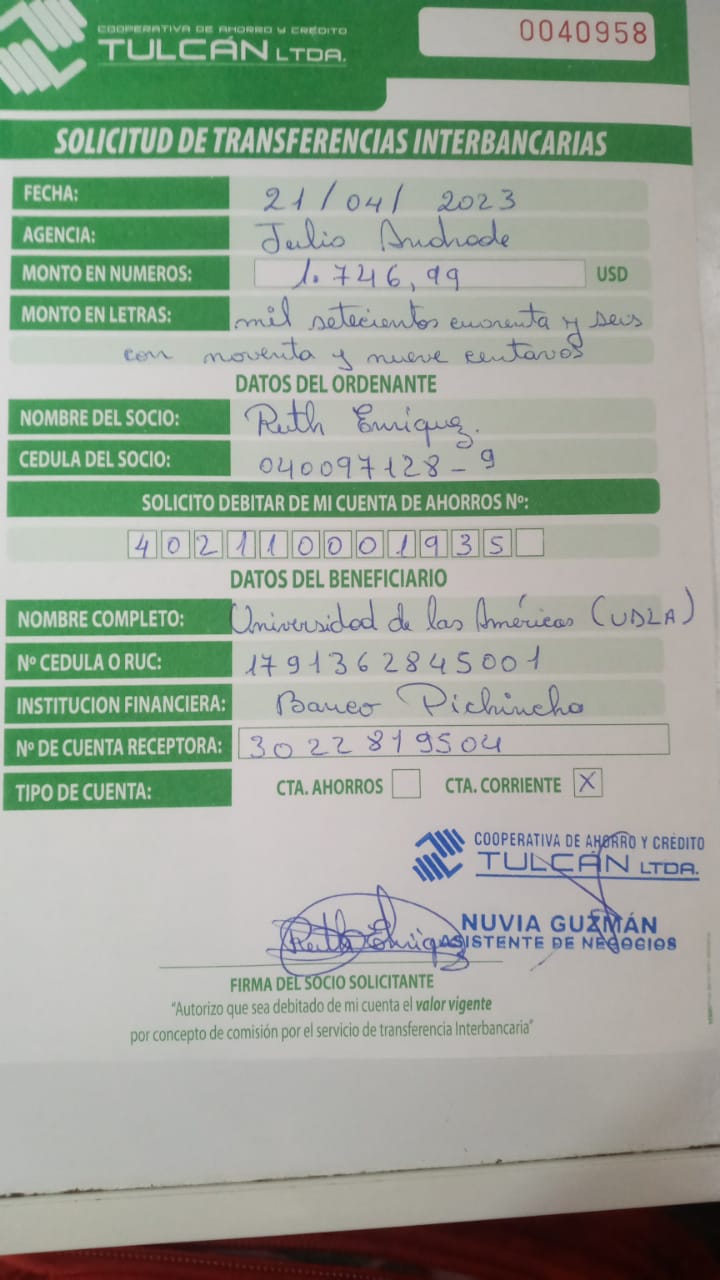 COOPERATIVA DE AHORRO Y CRÉDITO
TULCÁN LTDA.
0040958
SOLICITUD DE TRANSFERENCIAS INTERBANCARIAS
FECHA: 21/04/ 2023
AGENCIA: Julio Andrade
MONTO EN NUMEROS: 1.746,99 USD
MONTO EN LETRAS: mil setecientos cuarenta y seis
con noventa y nueve centavos
DATOS DEL ORDENANTE
NOMBRE DEL SOCIO: Ruth Enriquez.
CEDULA DEL SOCIO: 040097128-9
SOLICITO DEBITAR DE MI CUENTA DE AHORROS Nº:
402110001935
DATOS DEL BENEFICIARIO
NOMBRE COMPLETO: Universidad de las Américas (UDLA)
Nº CEDULA O RUC: 1791362845001
INSTITUCION FINANCIERA: Banco Pichincha
Nº DE CUENTA RECEPTORA: 3022819504
TIPO DE CUENTA: CTA. AHORROS CTA. CORRIENTE X
COOPERATIVA DE AHORRO Y CRÉDITO
TULCÁN LTDA.
NUVIA GUZMÁN
Ruth Enriquez ASISTENTE DE NEGOCIOS
FIRMA DEL SOCIO SOLICITANTE
"Autorizo que sea debitado de mi cuenta el valor vigente
por concepto de comisión por el servicio de transferencia Interbancaria"